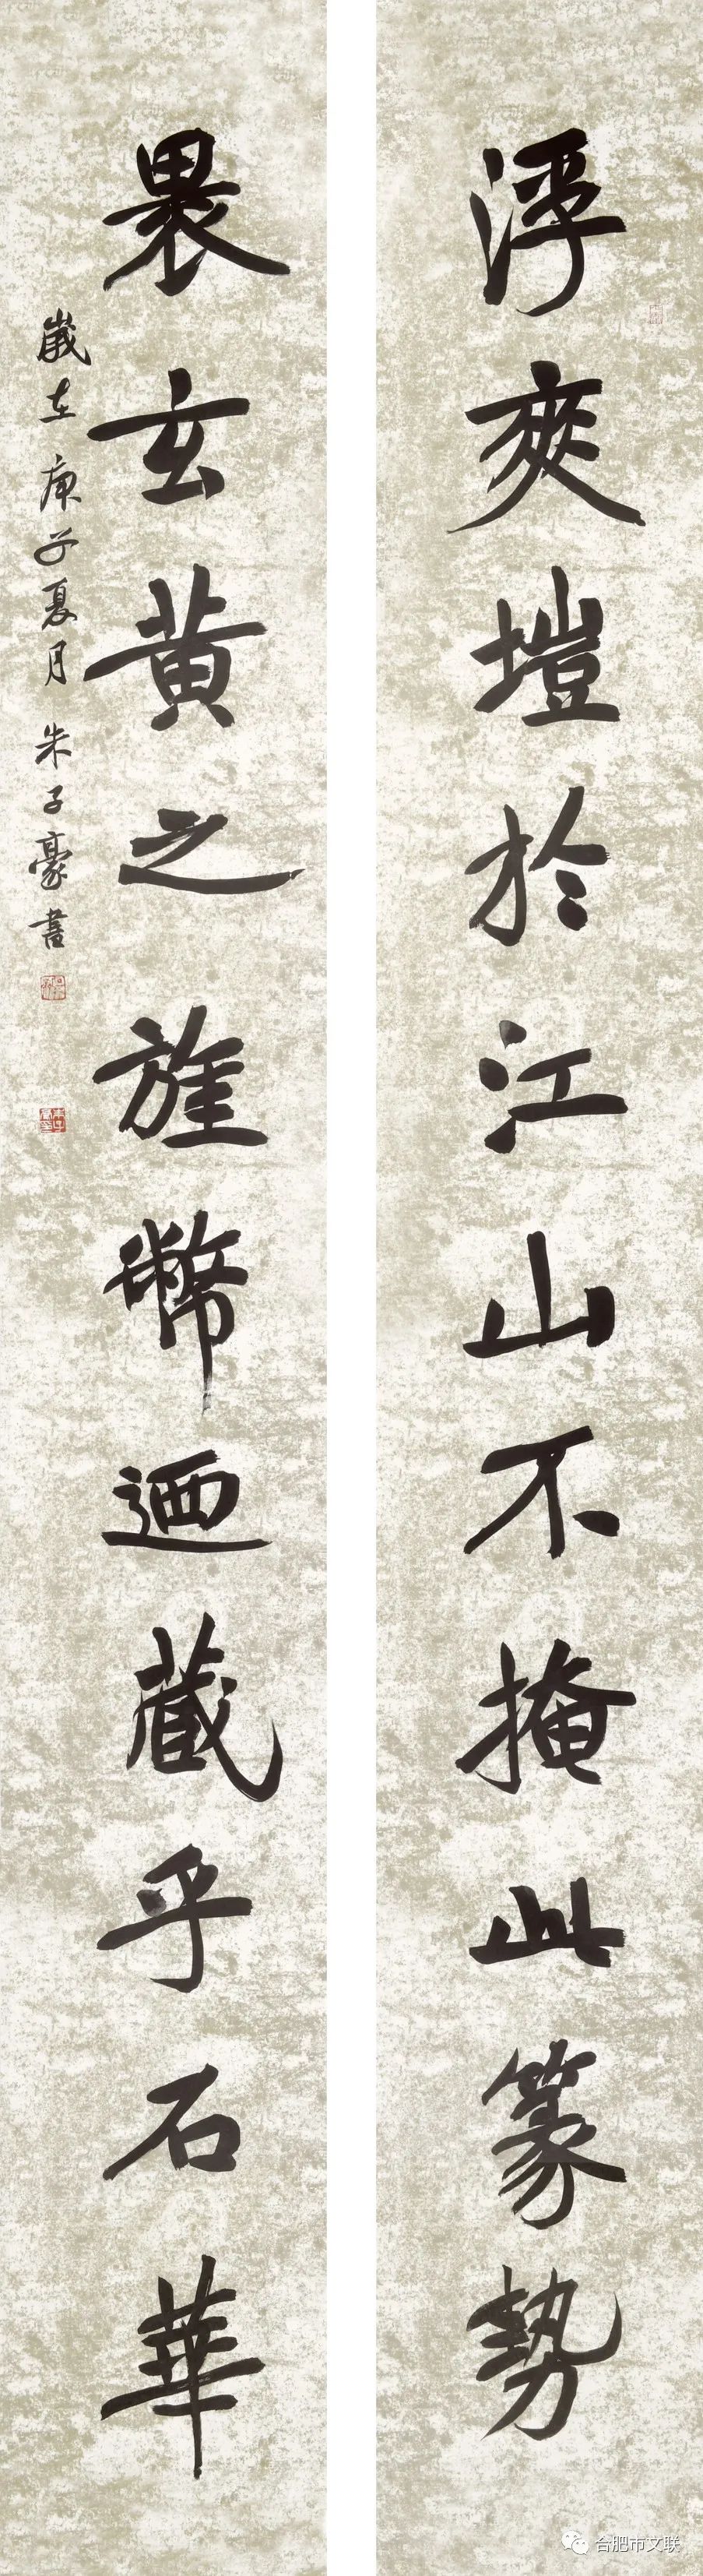 浮爽塏於江山不掩此篆勢
裹玄黃之旌幣迺藏乎石華
歲在庚子夏月 朱子豪書
合肥市文联